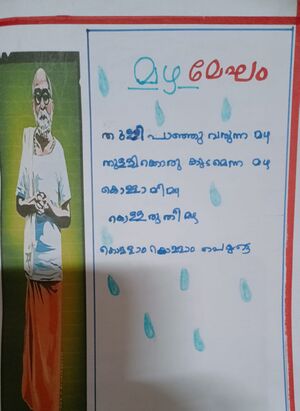 മഴ മേഘം
തുള്ളി പാഞ്ഞു വരുന്ന മഴ
നുള്ളിക്കൊരു കുടമെന്ന മഴ
കൊള്ളാമീ മഴ
കൊള്ളരുതീ മഴ
കൊള്ളാം കൊള്ളാം പെയ്യട്ടെ